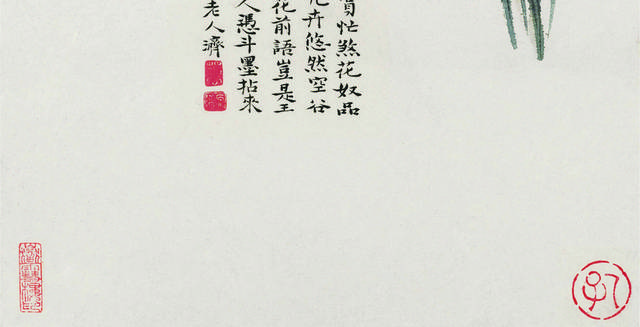 忙煞花奴品
卉悠然空谷
花前語豈是王
人憑斗墨拈來
老人濟